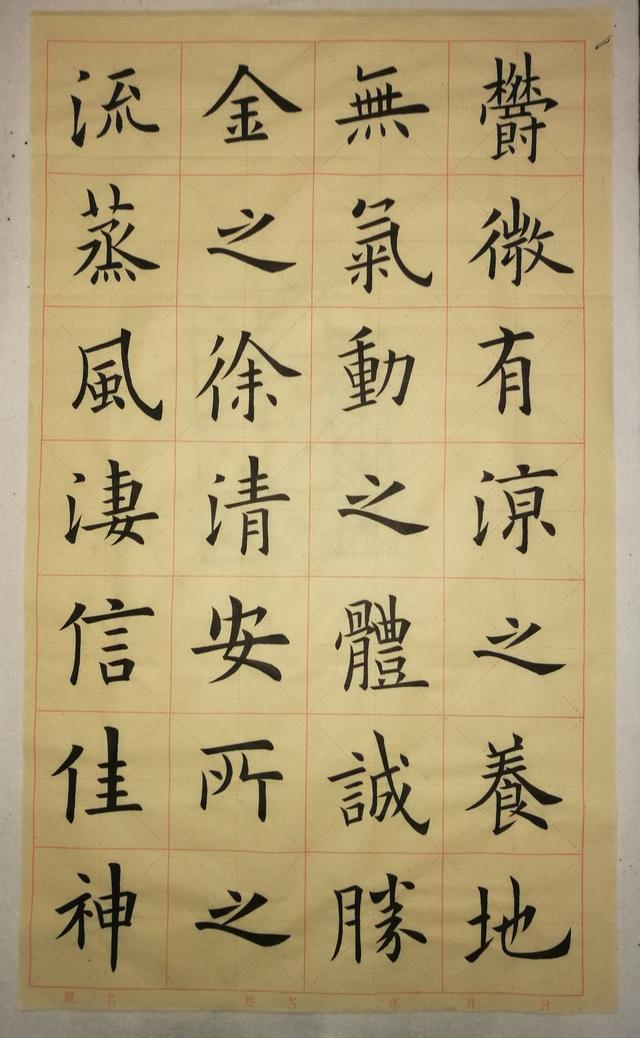 流金無欝
蒸之氣微
風徐動有
淒清之涼
信安體之
佳所誠養
神之勝地
班 名 姓 名 年 月 日